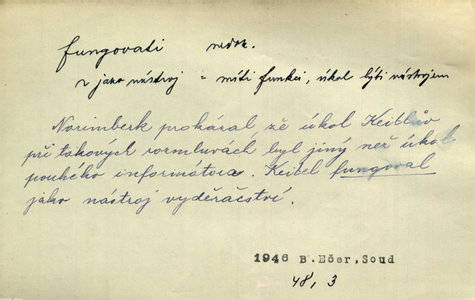 fungovati nedok.
2 jako nástroj = míti funkci, úkol býti nástrojem
Norimberk prokázal, že úkol Keitlův
při takových rozmluvách byl jiný než úkol
pouhého informátora. Keitel fungoval
jako nástroj vyděračství.
1946 B. Ečer, Soud
48, 3